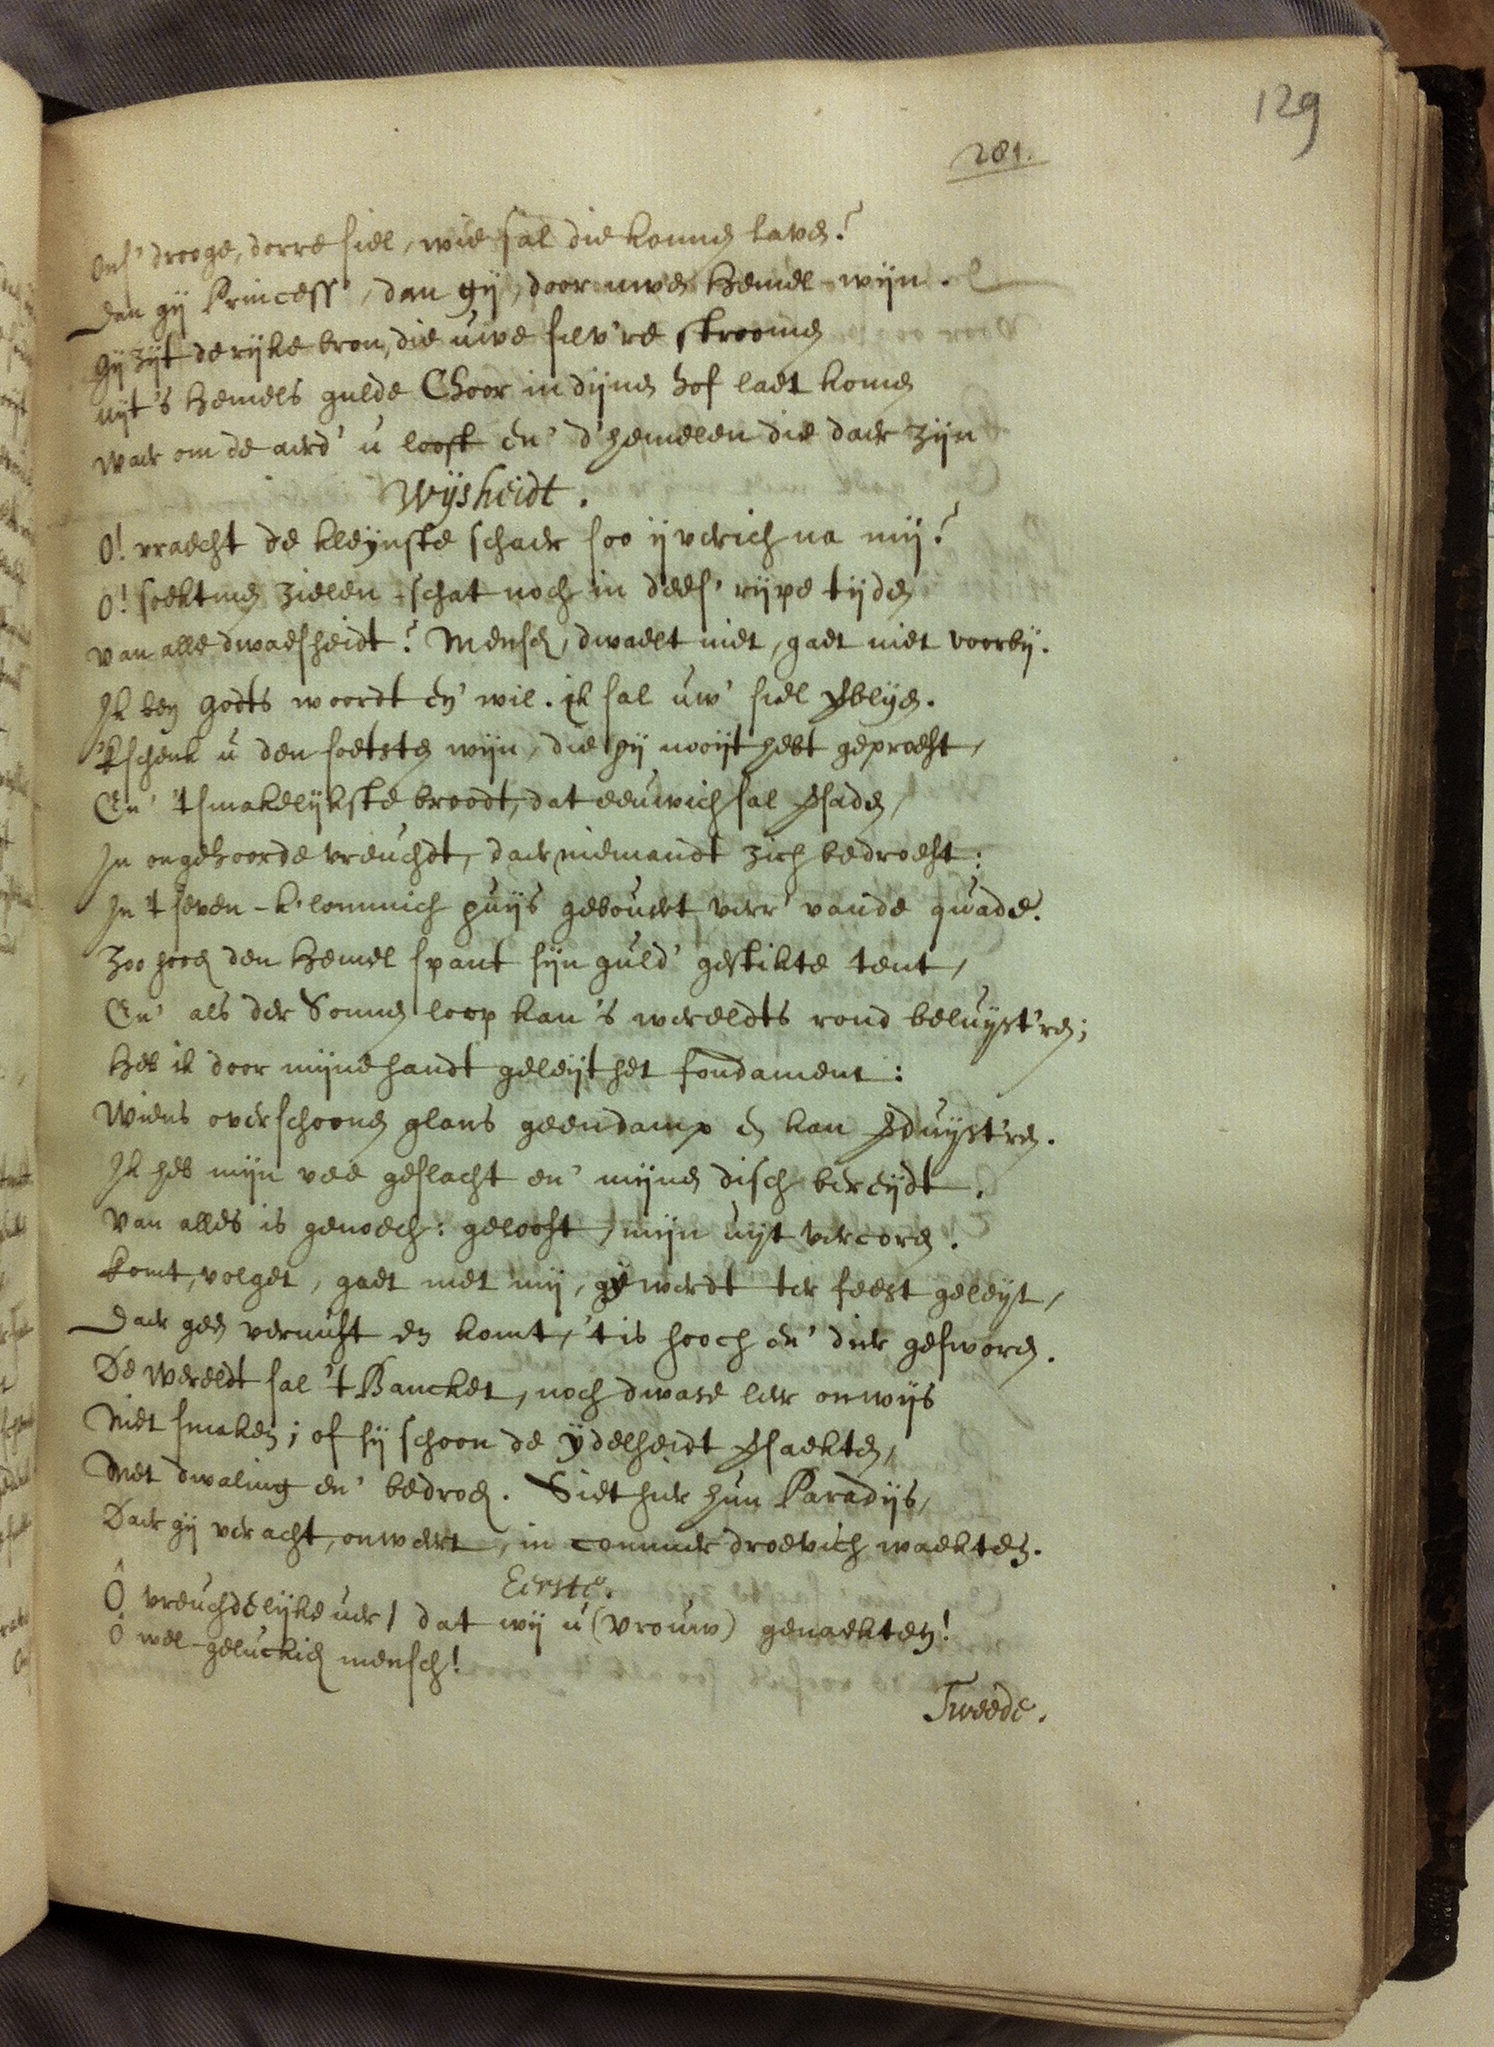 129
281.
Ons' drooge, dorre siel, wie sal die konnen laven?
Dan gij Princess', dan gij, door uwen Hemel-wijn.
Gij zijt de rijke bron, die uwe silv're stroomen
uijt 's Hemels gulde Choor in dijnen hof laet komen
Waer om de aerd' u looft en' d'hemelen die daer zijn
Wijsheidt.
O! vraecht de kleijnste schaer soo ijverich na mij?
O! soektmen zielen-schat noch in dees' rijpe tijden
van alle dwaesheidt? Mensch, dwaelt niet, gaet niet voorbij.
Ik ben Godts woordt en' wil. ik sal uw' siel verblijen.
'k schenk u den soetsten wijn, die gij nooijt hebt geproeft,
En' 't smakelijkste broodt, dat eeuwich sal versaden,
In ongehoorde vreuchdt, daer niemandt zich bedroeft:
In 't seven-k'lomnich huijs gebouwt verr' vande quade.
Zoo hooch den Hemel spant sijn guld' gestikte tent,
En' als der Sonnen loop kan 's werelts rond beluijst'ren;
Heb ik door mijne handt geleijt het fondament:
Wiens overschoonen glans geen damp en kan verduijst'ren.
Ik heb mijn vee geslacht en' mijnen disch bereijdt.
van alles is genoech: gelooft, mijn uijt vercoren.
komt, volget, gaet met mij, gij werdt ter feest geleijt,
Daer geen vernuft en komt, 't is hooch en' dier gesworen.
De wereldt sal 't Bancket, noch dwase leer onwijs
Niet smaken; of sij schoon de ijdelheidt versaekten,
Met dwaling en' bedroch. Siet hier hun Paradijs,
Daer gij veracht, onweert, in commer droevich waekten.
Eerste.
Ô vreuchdelijke uer, dat wij u (vrouw) genaekten!
Ô wel-geluckich mensch!
Tweede.